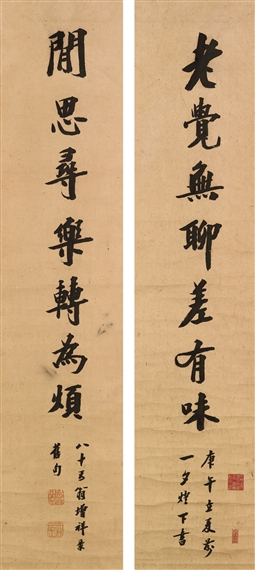 老覺無聊差有味
庚午立夏前
一夕燈下書
閒思尋樂轉為煩
八十五翁增祥集
舊句